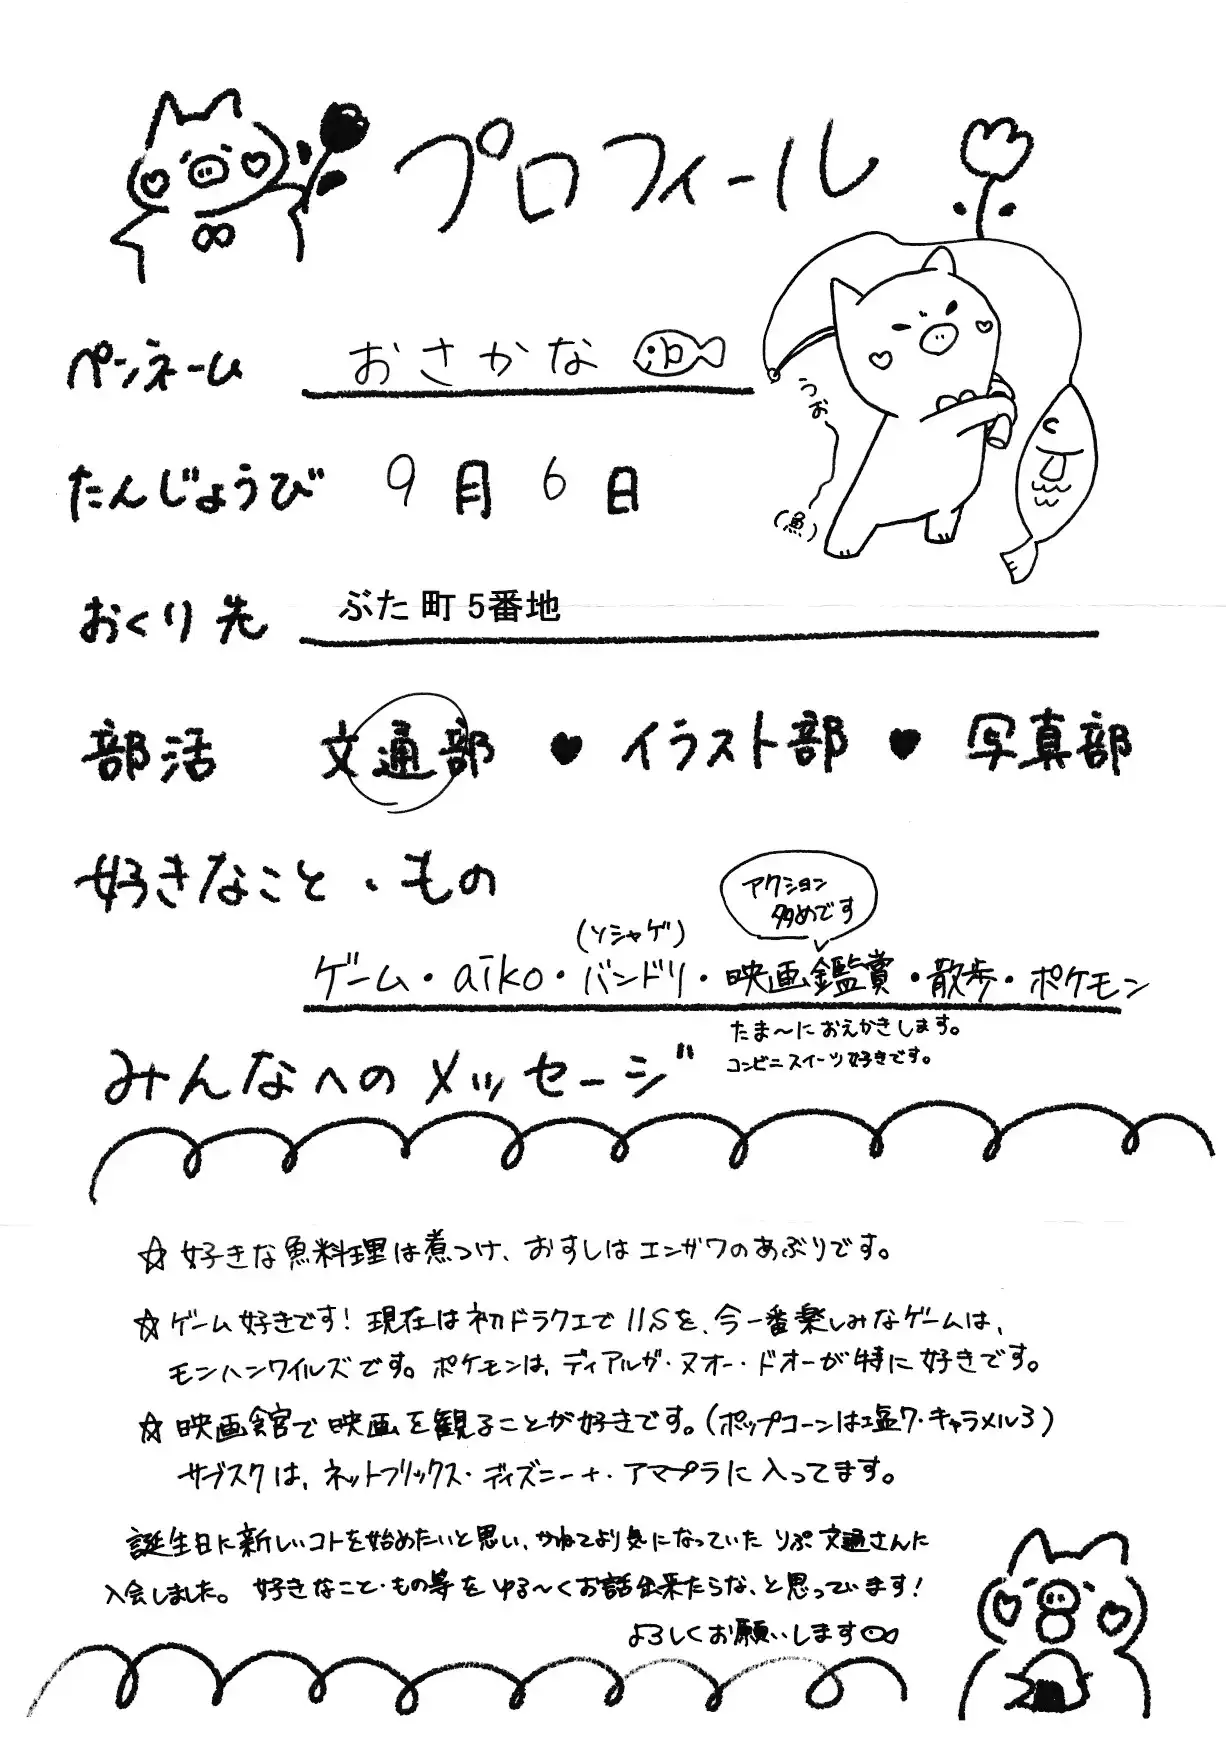 プロフィール
ペンネーム おさかな
うお
(魚)
たんじょうび 9月6日
おくり先 ぶた町5番地
部活 文通部 ♥ イラスト部 ♥ 写真部
好きなこと・もの
アクション
多めです
(ソシャゲ)
ゲーム・aiko・バンドリ・映画鑑賞・散歩・ポケモン
たま〜におえかきします。
コンビニスイーツ好きです。
みんなへのメッセージ
☆好きな魚料理は煮つけ、おすしはエンガワのあぶりです。
☆ゲーム好きです!現在は初ドラクエで11Sを、今一番楽しみなゲームは、
モンハンワイルズです。ポケモンは、ディアルガ・ヌオー・ドオーが特に好きです。
☆映画館で映画を観ることが好きです。(ポップコーンは塩7・キャラメル3)
サブスクは、ネットフリックス・ディズニー+・アマプラに入ってます。
誕生日に新しいコトを始めたいと思い、かねてより気になっていたりぷ文通さんに
入会しました。好きなこと・もの等をゆる〜くお話出来たらな、と思っています!
よろしくお願いします